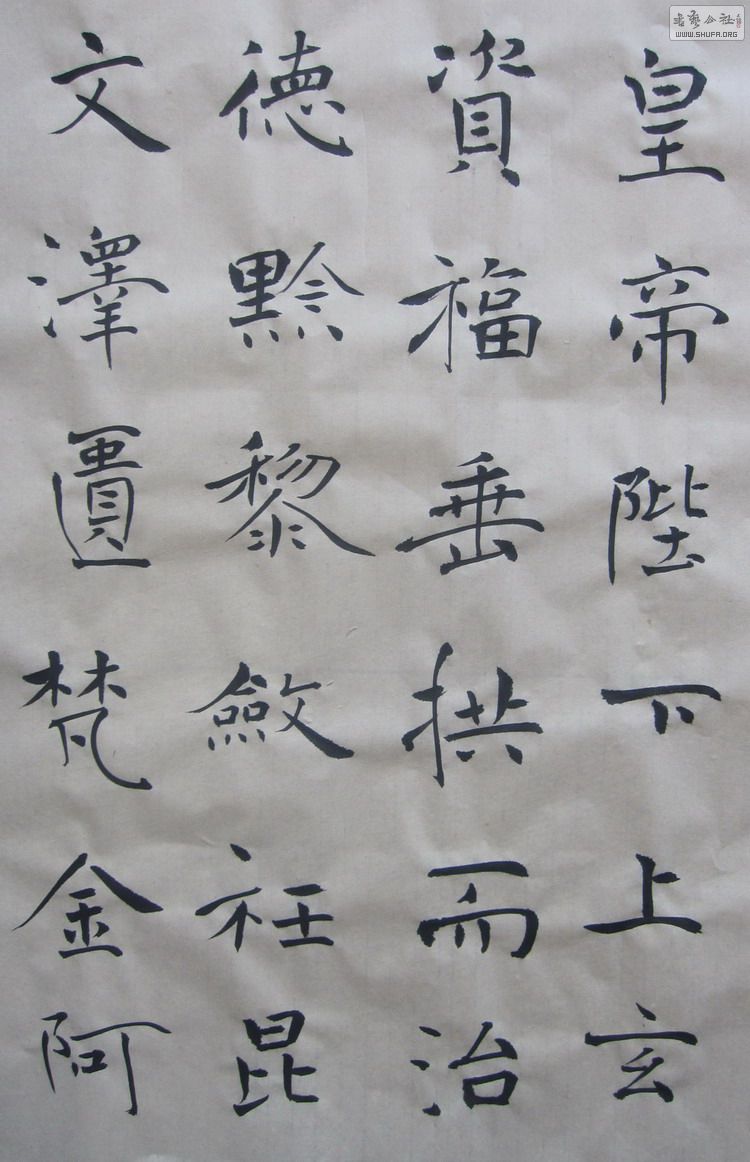 皇帝陛下上玄
資福垂拱而治
德黔黎斂衽昆
文澤匱梵金阿
書藝公社
WWW.SHUFA.ORG